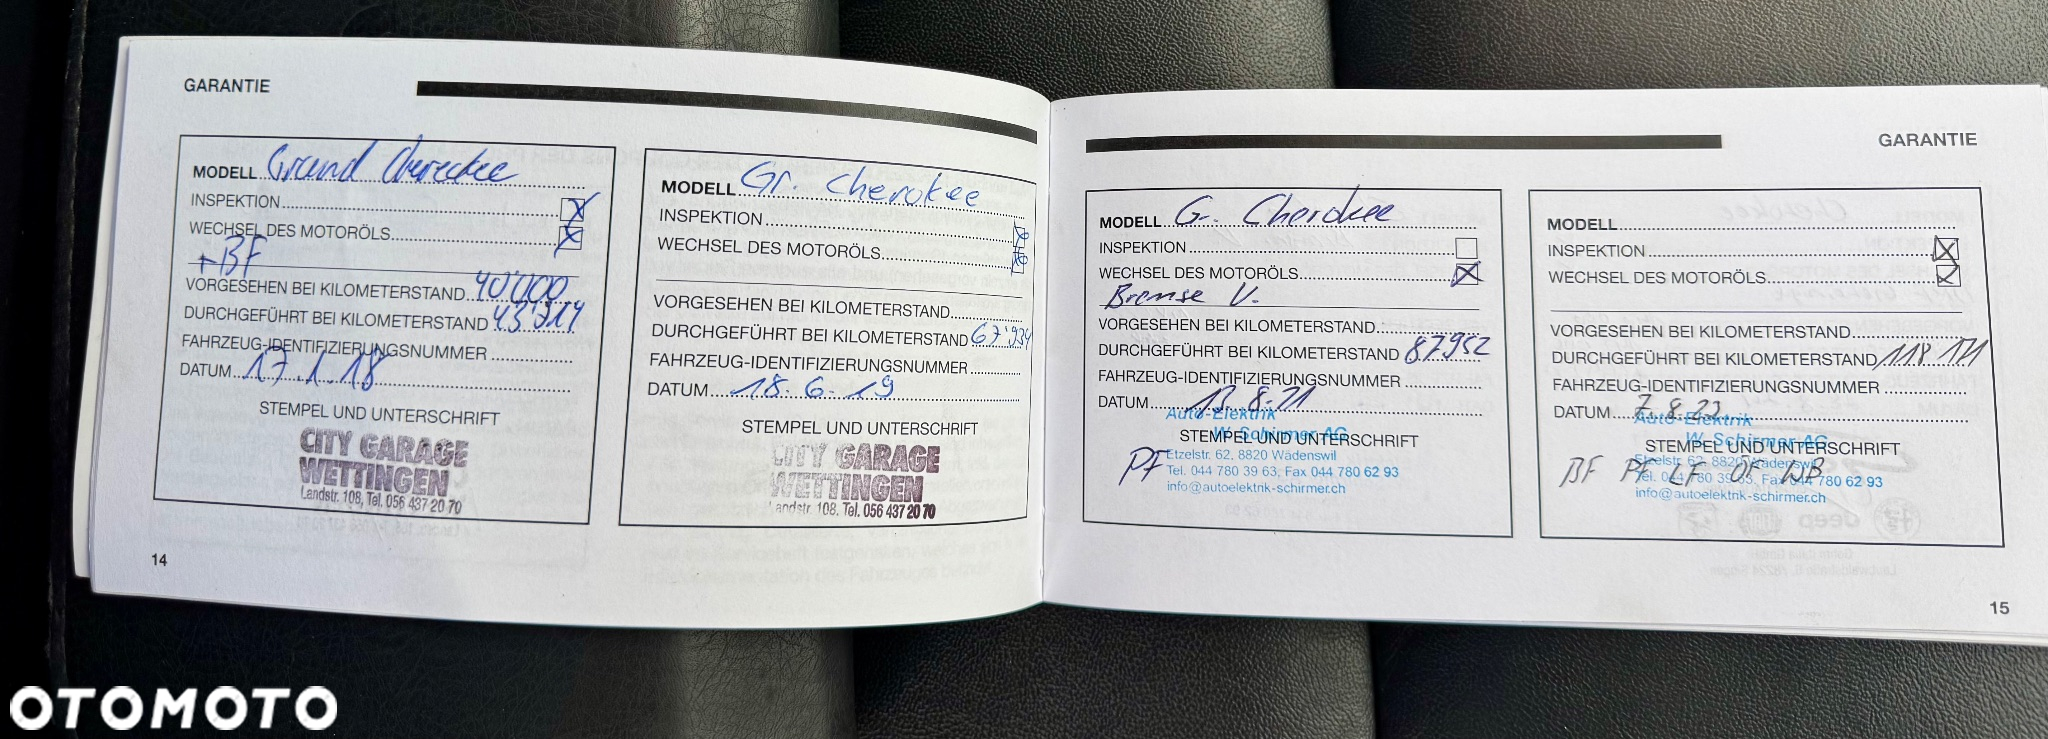 GARANTIE
MODELL Grand Cherokee
INSPEKTION
WECHSEL DES MOTORÖLS
+BF
VORGESEHEN BEI KILOMETERSTAND 40'000
DURCHGEFÜHRT BEI KILOMETERSTAND 43'314
FAHRZEUG-IDENTIFIZIERUNGSNUMMER
DATUM 17.1.18
STEMPEL UND UNTERSCHRIFT
CITY GARAGE
WETTINGEN
Landstr. 108, Tel. 056 437 20 70
14
MODELL Gr. Cherokee
INSPEKTION
WECHSEL DES MOTORÖLS
VORGESEHEN BEI KILOMETERSTAND
DURCHGEFÜHRT BEI KILOMETERSTAND 67'934
FAHRZEUG-IDENTIFIZIERUNGSNUMMER
DATUM 18.6.19
STEMPEL UND UNTERSCHRIFT
CITY GARAGE
WETTINGEN
Landstr. 108, Tel. 056 437 20 70
GARANTIE
MODELL G. Cherokee
INSPEKTION
WECHSEL DES MOTORÖLS
Bremse V.
VORGESEHEN BEI KILOMETERSTAND
DURCHGEFÜHRT BEI KILOMETERSTAND 87952
FAHRZEUG-IDENTIFIZIERUNGSNUMMER
DATUM
Auto-Elektrik
W. Schirmer AG
STEMPEL UND UNTERSCHRIFT
PF
Etzelstr. 62, 8820 Wädenswil
Tel. 044 780 39 63, Fax 044 780 62 93
info@autoelektrik-schirmer.ch
MODELL
INSPEKTION
WECHSEL DES MOTORÖLS
VORGESEHEN BEI KILOMETERSTAND
DURCHGEFÜHRT BEI KILOMETERSTAND 118 171
FAHRZEUG-IDENTIFIZIERUNGSNUMMER
DATUM 7.8.23
Auto-Elektrik
W. Schirmer AG
STEMPEL UND UNTERSCHRIFT
BF PF LF ÖF WB
Etzelstr. 62, 8820 Wädenswil
Tel. 044 780 39 63, Fax 044 780 62 93
info@autoelektrik-schirmer.ch
15
OTOMOTO